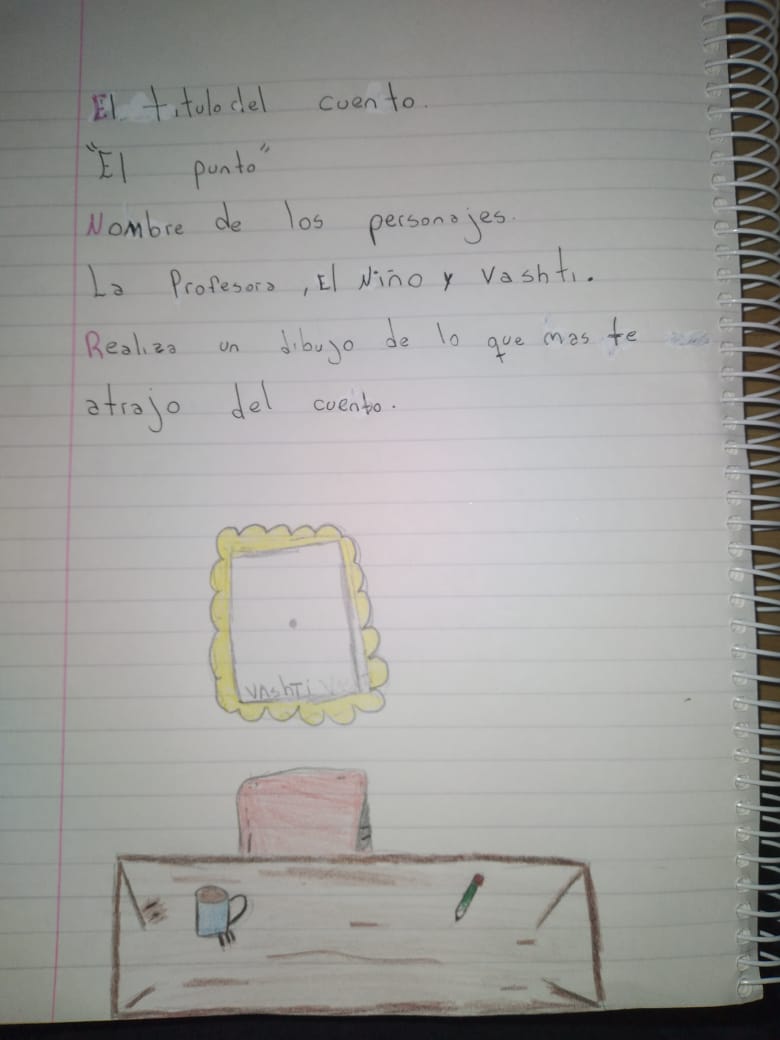 El titulo del cuento.
"El punto"
Nombre de los personajes.
La Profesora, El Niño y Vashti.
Realiza un dibujo de lo que mas te
atrajo del cuento.
VAshTi